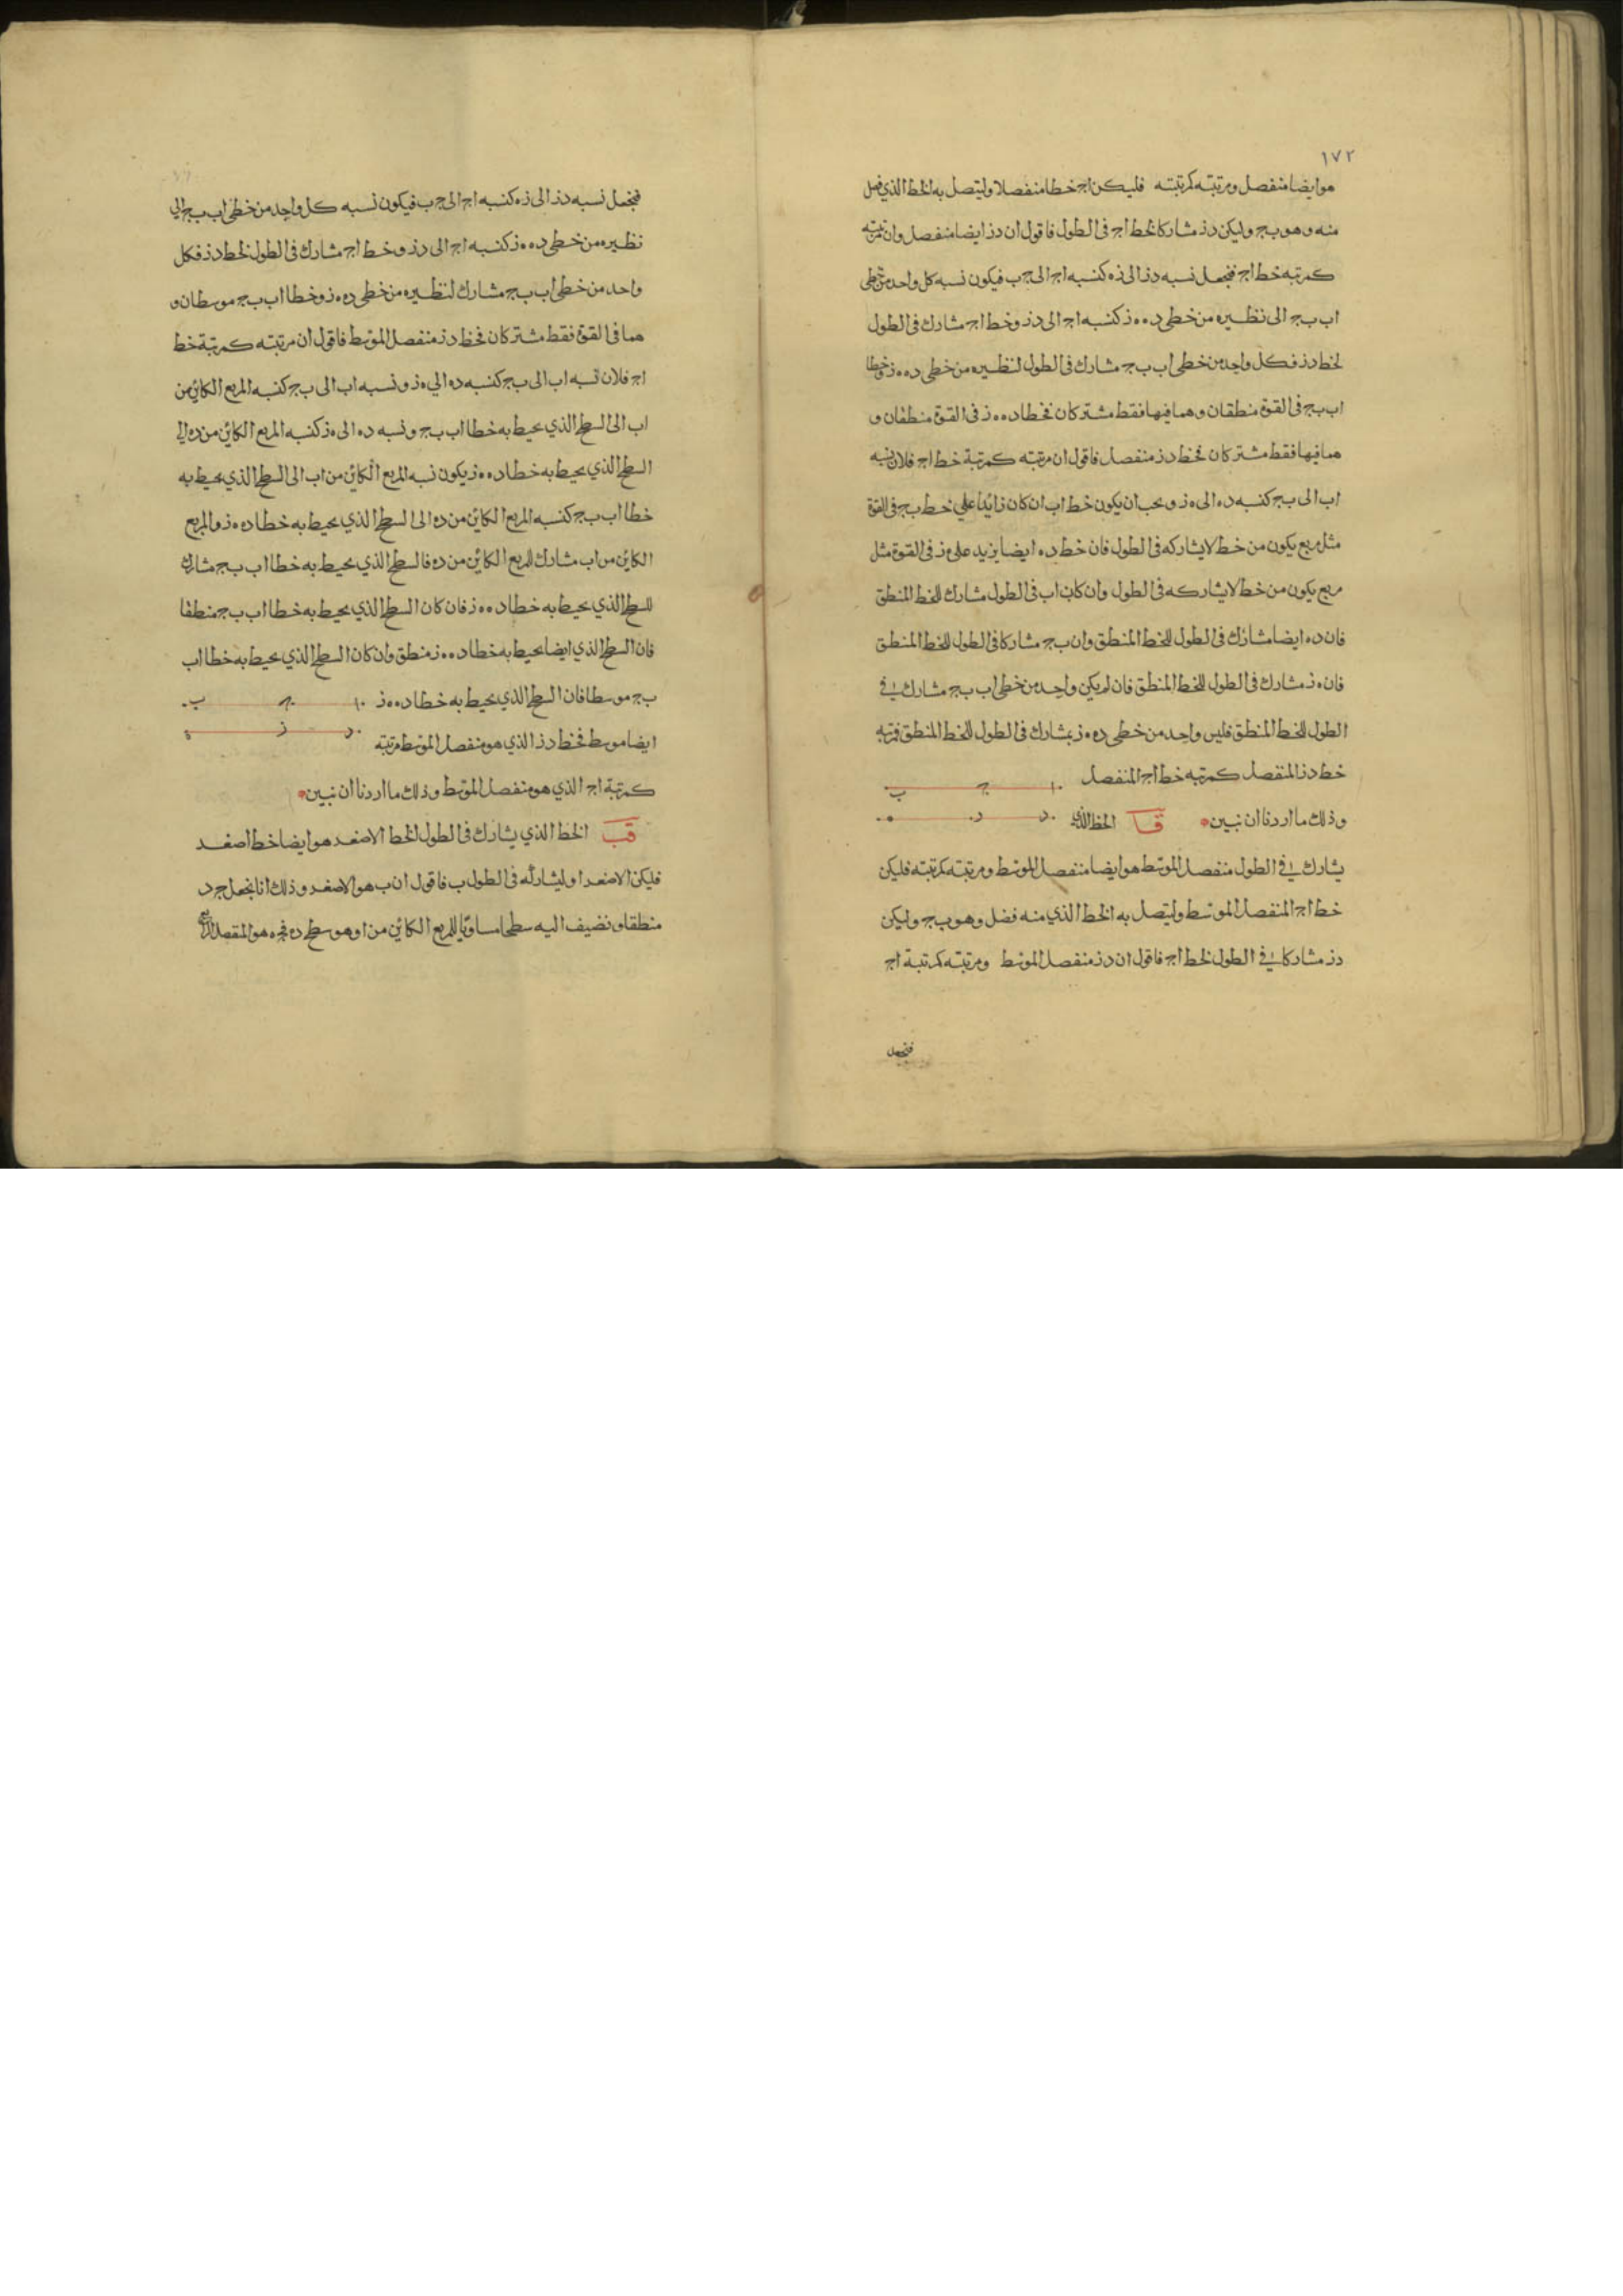 ١٧٢
هو ايضا منفصل ومرتبته كمرتبته فليكن اج خطا منفصلا وليتصل به الخط الذي فصل
منه وهو بج وليكن دز مشاركا لخط اج فى الطول فاقول ان دز ايضا منفصل وان مرتبته
كمرتبه خط اج فنجعل نسبه دز الى زه كنسبه اج الى جب فيكون نسبه كل واحد من خطى
اب بج الى نظيره من خطى ده ه‍ز كنسبه اج الى دز وخط اج مشارك فى الطول
لخط دز فكل واحد من خطى اب بج مشارك فى الطول لنظيره من خطى ده ه‍ز وخطا
اب بج فى القوة منطقان وهما فيها فقط مشتركان فخطا ده ه‍ز فى القوة منطقان و
هما فيها فقط مشتركان فخط دز منفصل فاقول ان مرتبته كمرتبة خط اج فلان نسبه
اب الى بج كنسبه ده الى ه‍ز ويجب ان يكون خط اب ان كان زايدا على خط بج فى القوة
مثل مربع يكون من خط لا يشاركه فى الطول فان خط ده ايضا يزيد على ه‍ز فى القوة مثل
مربع يكون من خط لا يشاركه فى الطول وان كان اب فى الطول مشارك للخط المنطق
فان ده ايضا مشارك فى الطول للخط المنطق وان بج مشاركا فى الطول للخط المنطق
فان ه‍ز مشارك فى الطول للخط المنطق فان لم يكن واحد من خطى اب بج مشارك فى
الطول للخط المنطق فليس واحد من خطى ده ه‍ز بمشارك فى الطول للخط المنطق فمرتبه
خط دز المنفصل كمرتبه خط اج المنفصل
ا ج ب
وذلك ما اردنا ان نبين قا الخط الذي
د د ه
يشارك فى الطول منفصل الموسط هو ايضا منفصل الموسط ومرتبته كمرتبته فليكن
خط اج المنفصل الموسط وليتصل به الخط الذي منه فضل وهو بج وليكن
دز مشاركا في الطول لخط اج فاقول ان دز منفصل الموسط ومرتبته كمرتبة اج
فنجعل
فنجعل نسبه دز الى زه كنسبه اج الى جب فيكون نسبه كل واحد من خطى اب بج الى
نظيره من خطى ده ه‍ز كنسبه اج الى دز وخط اج مشارك فى الطول لخط دز فكل
واحد من خطى اب بج مشارك لنظيره من خطى ده ه‍ز وخطا اب بج موسطان و
هما فى القوة فقط مشتركان فخط دز منفصل الموسط فاقول ان مرتبته كمرتبة خط
اج فلان نسبه اب الى بج كنسبه ده الى ه‍ز ونسبه اب الى بج كنسبه المربع الكائن من
اب الى السطح الذي يحيط به خطا اب بج ونسبه ده الى ه‍ز كنسبه المربع الكائن من ده الى
السطح الذي يحيط به خطا ده ه‍ز يكون نسبه المربع الكائن من اب الى السطح الذي يحيط به
خطا اب بج كنسبه المربع الكائن من ده الى السطح الذي يحيط به خطا ده ه‍ز والمربع
الكائن من اب مشارك للمربع الكائن من ده فالسطح الذي يحيط به خطا اب بج مشارك
للسطح الذي يحيط به خطا ده ه‍ز فان كان السطح الذي يحيط به خطا اب بج منطقا
فان السطح الذي ايضا يحيط به خطا ده ه‍ز منطق وان كان السطح الذي يحيط به خطا اب
بج موسطا فان السطح الذي يحيط به خطا ده ه‍ز
ا ج ب
ايضا موسط فخط دز الذي هو منفصل الموسط مرتبته
د ز ه
كمرتبة اج الذي هو منفصل الموسط وذلك ما اردنا ان نبين
قب الخط الذي يشارك فى الطول لخط الاصغر هو ايضا خط اصغر
فليكن الاصغر ا وليشاركه فى الطول ب فاقول ان ب هو الاصغر وذلك انا نجعل جد
منطقا ونضيف اليه سطحا مساويا للمربع الكائن من ا وهو سطح ده فجه هو المنفصل الرابع